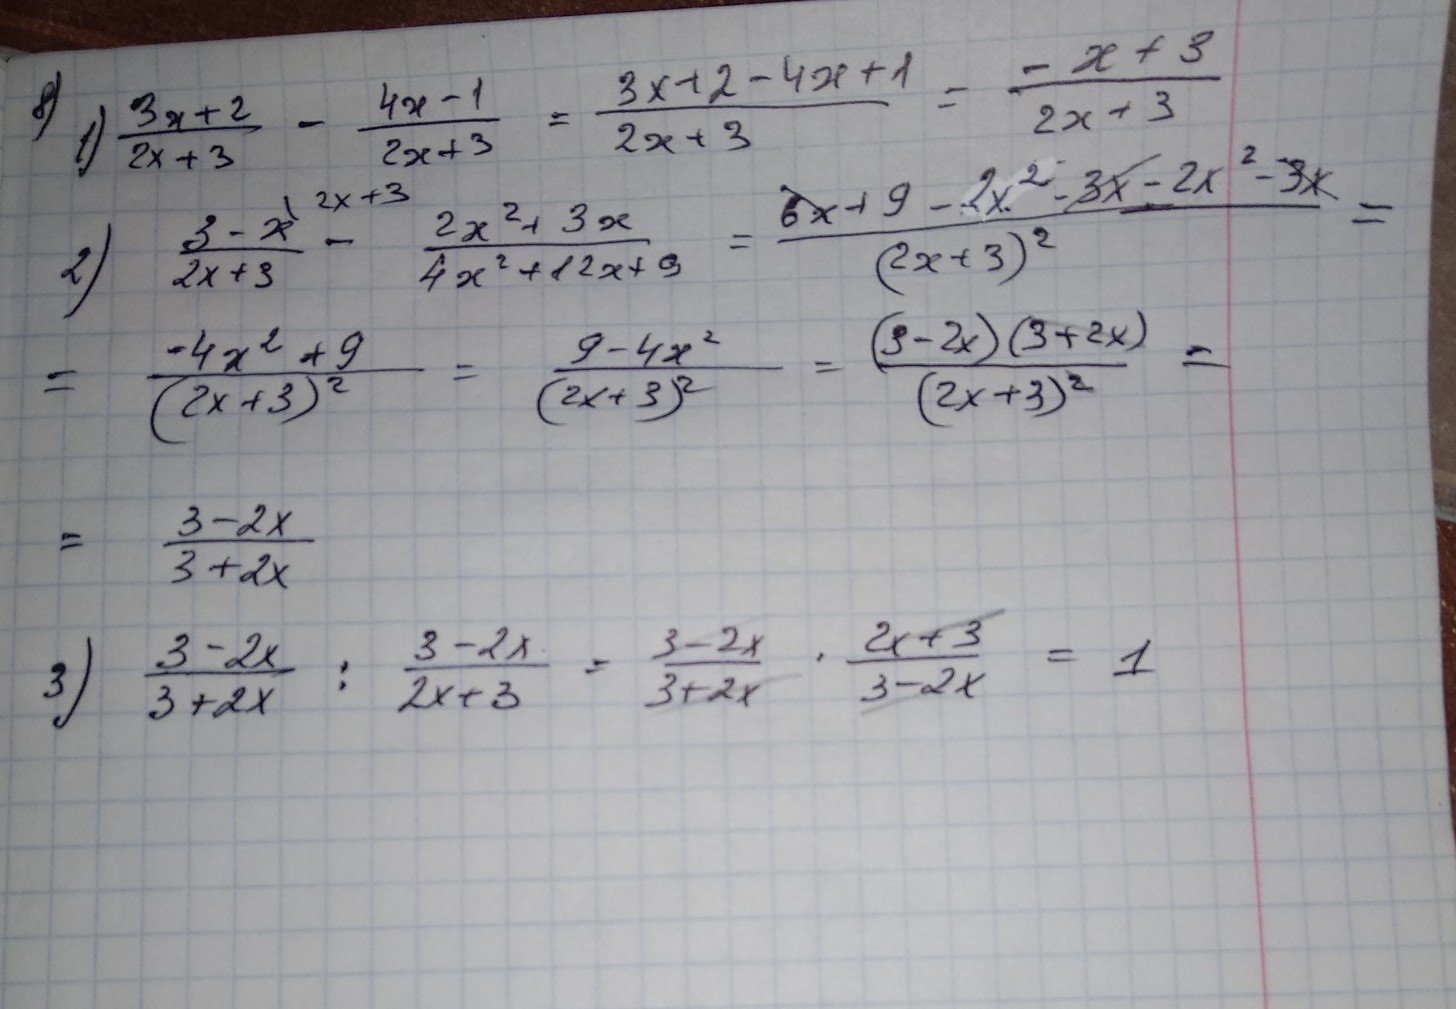 8) 1) (3x+2)/(2x+3) - (4x-1)/(2x+3) = (3x+2-4x+1)/(2x+3) = (-x+3)/(2x+3)
2) (3-x)/(2x+3) \ 2x+3 - (2x²+3x)/(4x²+12x+9) = (6x+9-2x²-3x-2x²-3x)/(2x+3)² =
= (-4x²+9)/(2x+3)² = (9-4x²)/(2x+3)² = ((3-2x)(3+2x))/(2x+3)² =
= (3-2x)/(3+2x)
3) (3-2x)/(3+2x) : (3-2x)/(2x+3) = (3-2x)/(3+2x) · (2x+3)/(3-2x) = 1